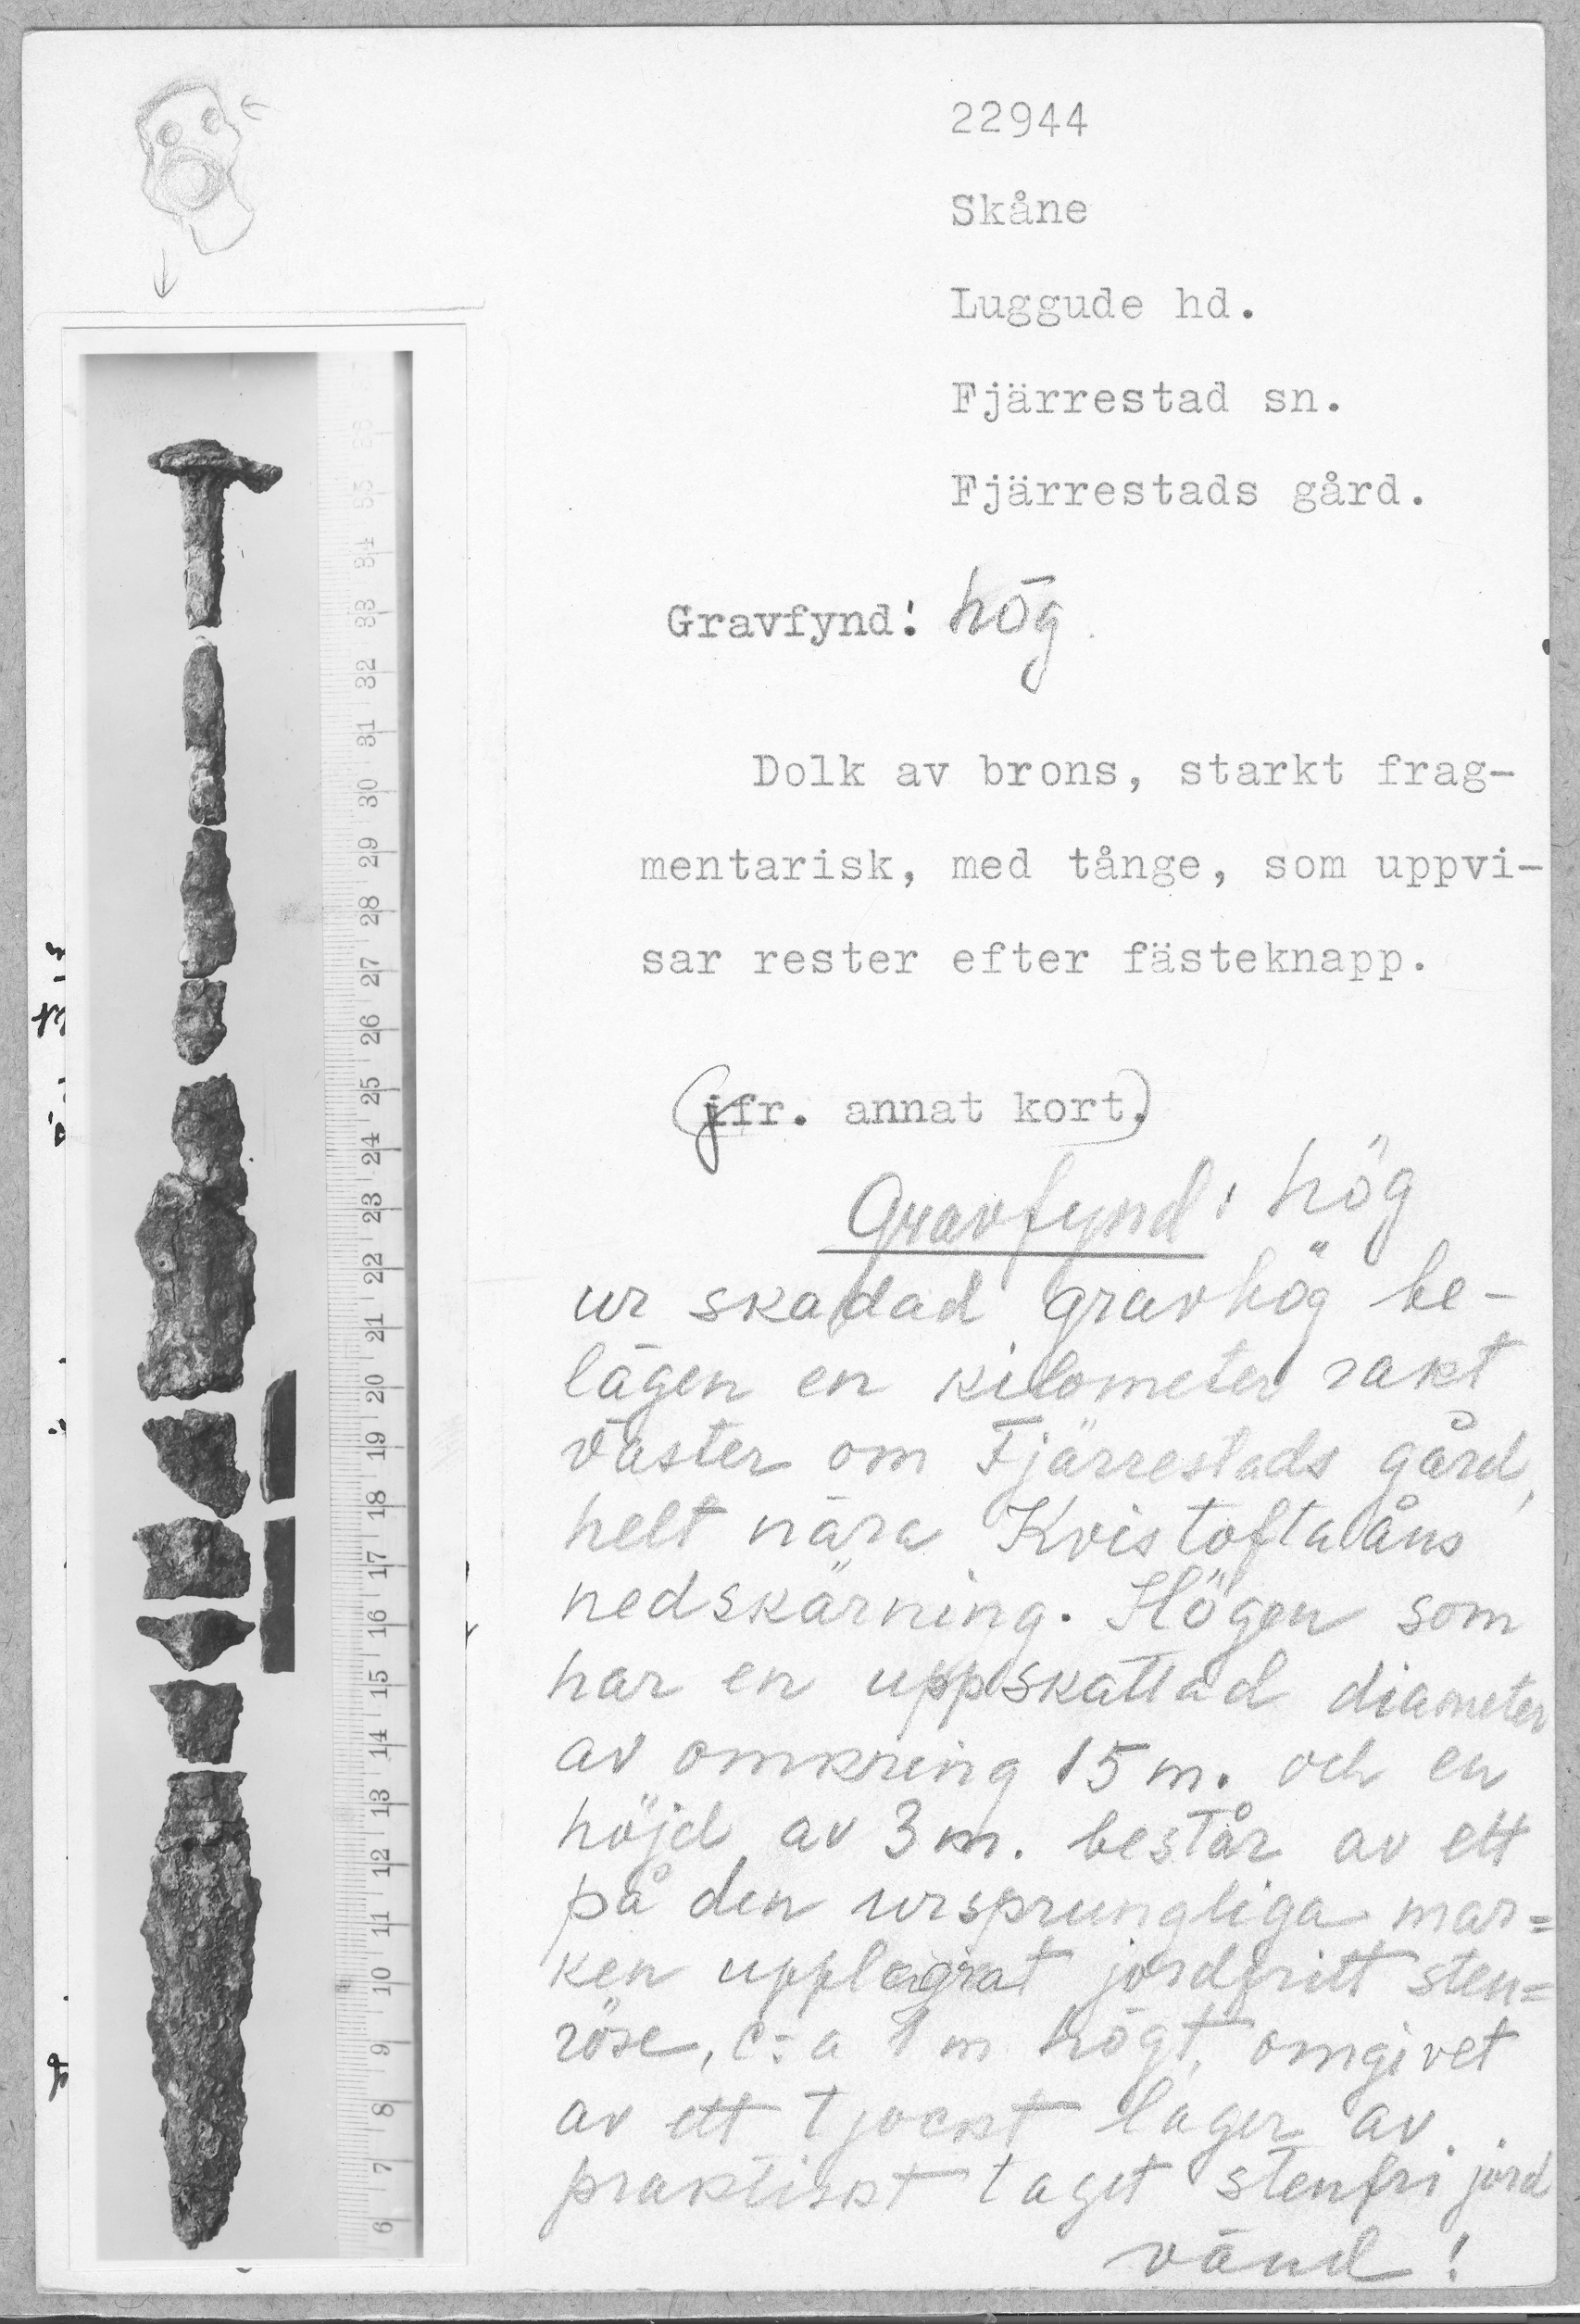 22944
Skåne
Luggude hd.
Fjärrestad sn.
Fjärrestads gård.
Gravfynd: hög.
Dolk av brons, starkt frag-
mentarisk, med tånge, som uppvi-
sar rester efter fästeknapp.
(jfr. annat kort.)
Gravfynd: hög
ur skadad gravhög be-
lägen en kilometer rakt
väster om Fjärrestads gård,
helt nära Kvistoftaåns
nedskärning. Högen som
har en uppskattad diameter
av omkring 15 m. och en
höjd av 3 m. består av ett
på den ursprungliga mar=
ken upplagrat jordfritt sten=
röse, c:a 1 m högt, omgivet
av ett tjockt lager av
praktiskt taget stenfri jord
vänd!
35
34
33
32
31
30
29
28
27
26
25
24
23
22
21
20
19
18
17
16
15
14
13
12
11
10
9
8
7
6